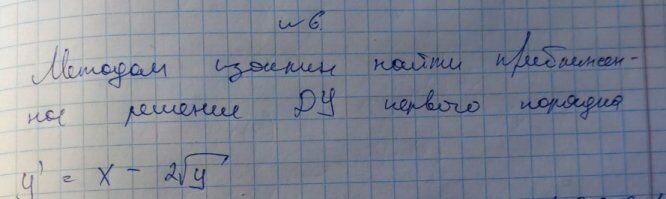 №6.
Методом изоклин найти приближен-
ное решение ДУ первого порядка
y' = x - 2√y